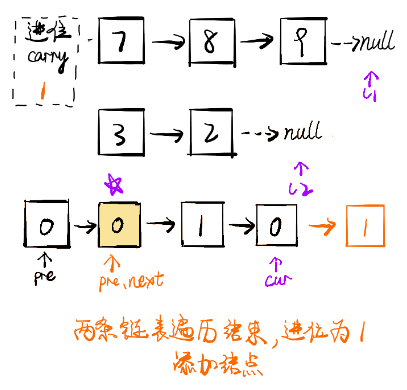 进位
carry
1
7 8 9 null
l1
3 2 null
l2
0 0 1 0 1
pre pre.next cur
两条链表遍历结束,进位为1
添加结点